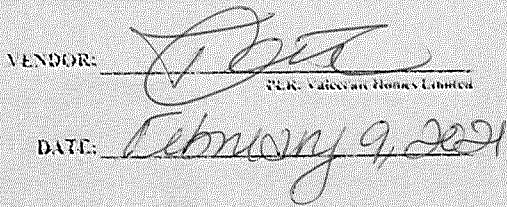 VENDOR:
PER: Valeevan Homes Limited
DATE: February 9, 2021